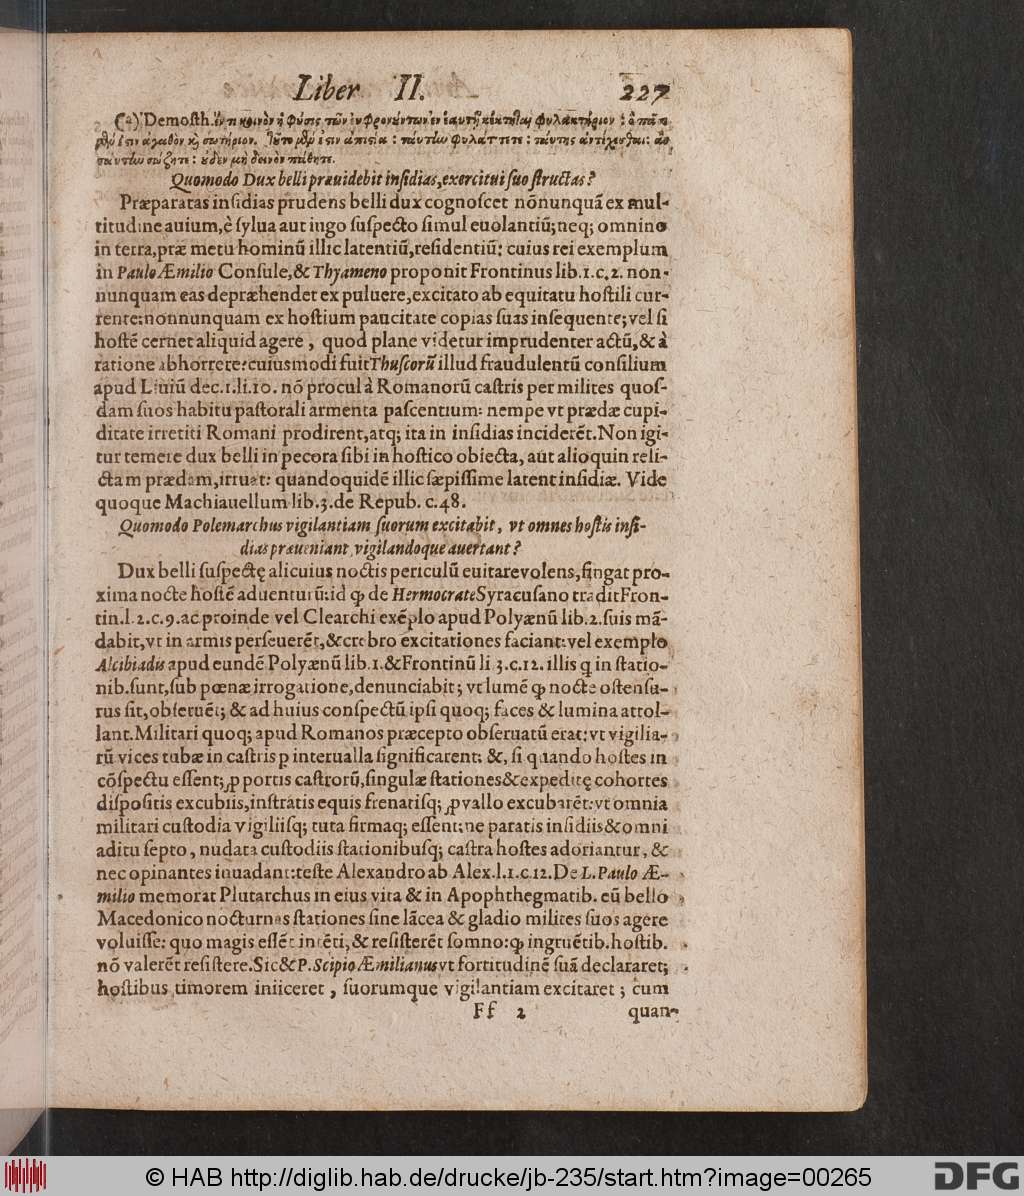 Liber II. 227
(a) Demosth. ἕν τι κοινὸν ἡ φύσις τῶν εὖ φρονούντων ἐν ἑαυτῇ κέκτηται φυλακτήριον : ὃ πᾶσι
μὲν ἐστιν ἀγαθὸν καὶ σωτήριον. τοῦτο μὲν ἐστιν ἀπιστία : ταύτην φυλάττετε : ταύτης ἀντέχεσθαι:
ταύτην σώζητε : οὐδὲν μὴ δεινὸν πάθητε.
Quomodo Dux belli præuidebit insidias, exercitui suo structas?
Præparatas insidias prudens belli dux cognoscet nōnunquā ex mul-
titudine auium, è sylua aut iugo suspecto simul euolantiū; neq; omnino
in terra, præ metu hominū illic latentiū, residentiū: cuius rei exemplum
in Paulo Æmilio Consule, & Thyameno proponit Frontinus lib.1.c.2. non-
nunquam eas depræhendet ex puluere, excitato ab equitatu hostili cur-
rente: nonnunquam ex hostium paucitate copias suas insequente; vel si
hostē cernet aliquid agere, quod plane videtur imprudenter actū, & à
ratione abhorrere: cuiusmodi fuit Thuscorū illud fraudulentū consilium
apud Liuiū dec.1.li.10. nō procul à Romanorū castris per milites quos-
dam suos habitu pastorali armenta pascentium: nempe vt prædæ cupi-
ditate irretiti Romani prodirent, atq; ita in insidias inciderēt. Non igi-
tur temere dux belli in pecora sibi in hostico obiecta, aut alioquin reli-
ctam prædam, irruat: quandoquidē illic sæpissime latent insidiæ. Vide
quoque Machiauellum lib.3. de Repub. c.48.
Quomodo Polemarchus vigilantiam suorum excitabit, vt omnes hostis insi-
dias præueniant, vigilandoque auertant?
Dux belli suspectę alicuius noctis periculū euitare volens, fingat pro-
xima nocte hostē aduenturū: id ꝙ de Hermocrate Syracusano tradit Fron-
tin.l.2.c.9. ac proinde vel Clearchi exēplo apud Polyænū lib.2. suis mā-
dabit, vt in armis perseuerēt, & crebro excitationes faciant: vel exemplo
Alcibiadis apud eundē Polyænū lib.1. & Frontinū li 3.c.12. illis q̃ in statio-
nib. sunt, sub pœnæ irrogatione, denunciabit; vt lumē ꝙ nocte ostensu-
rus sit, obseruēt; & ad huius conspectū ipsi quoq; faces & lumina attol-
lant. Militari quoq; apud Romanos præcepto obseruatū erat: vt vigilia-
rū vices tubæ in castris p interualla significarent: &, si quando hostes in
cōspectu essent; ꝓ portis castrorū, singulæ stationes & expeditę cohortes
dispositis excubiis, instratis equis frenatisq; ꝓ vallo excubarēt: vt omnia
militari custodia vigiliisq; tuta firmaq; essent: ne paratis insidiis & omni
aditu septo, nudata custodiis stationibusq; castra hostes adoriantur, &
nec opinantes inuadant: teste Alexandro ab Alex.l.1.c.12. De L. Paulo Æ-
milio memorat Plutarchus in eius vita & in Apophthegmatib. eū bello
Macedonico nocturnas stationes sine lācea & gladio milites suos agere
voluisse: quo magis essēt intēti, & resisterēt somno: ꝙ ingruētib. hostib.
nō valerēt resistere. Sic & P. Scipio Æmilianus vt fortitudinē suā declararet;
hostibus timorem iniiceret, suorumque vigilantiam excitaret; cum
Ff 2 quan-
© HAB http://diglib.hab.de/drucke/jb-235/start.htm?image=00265
DFG